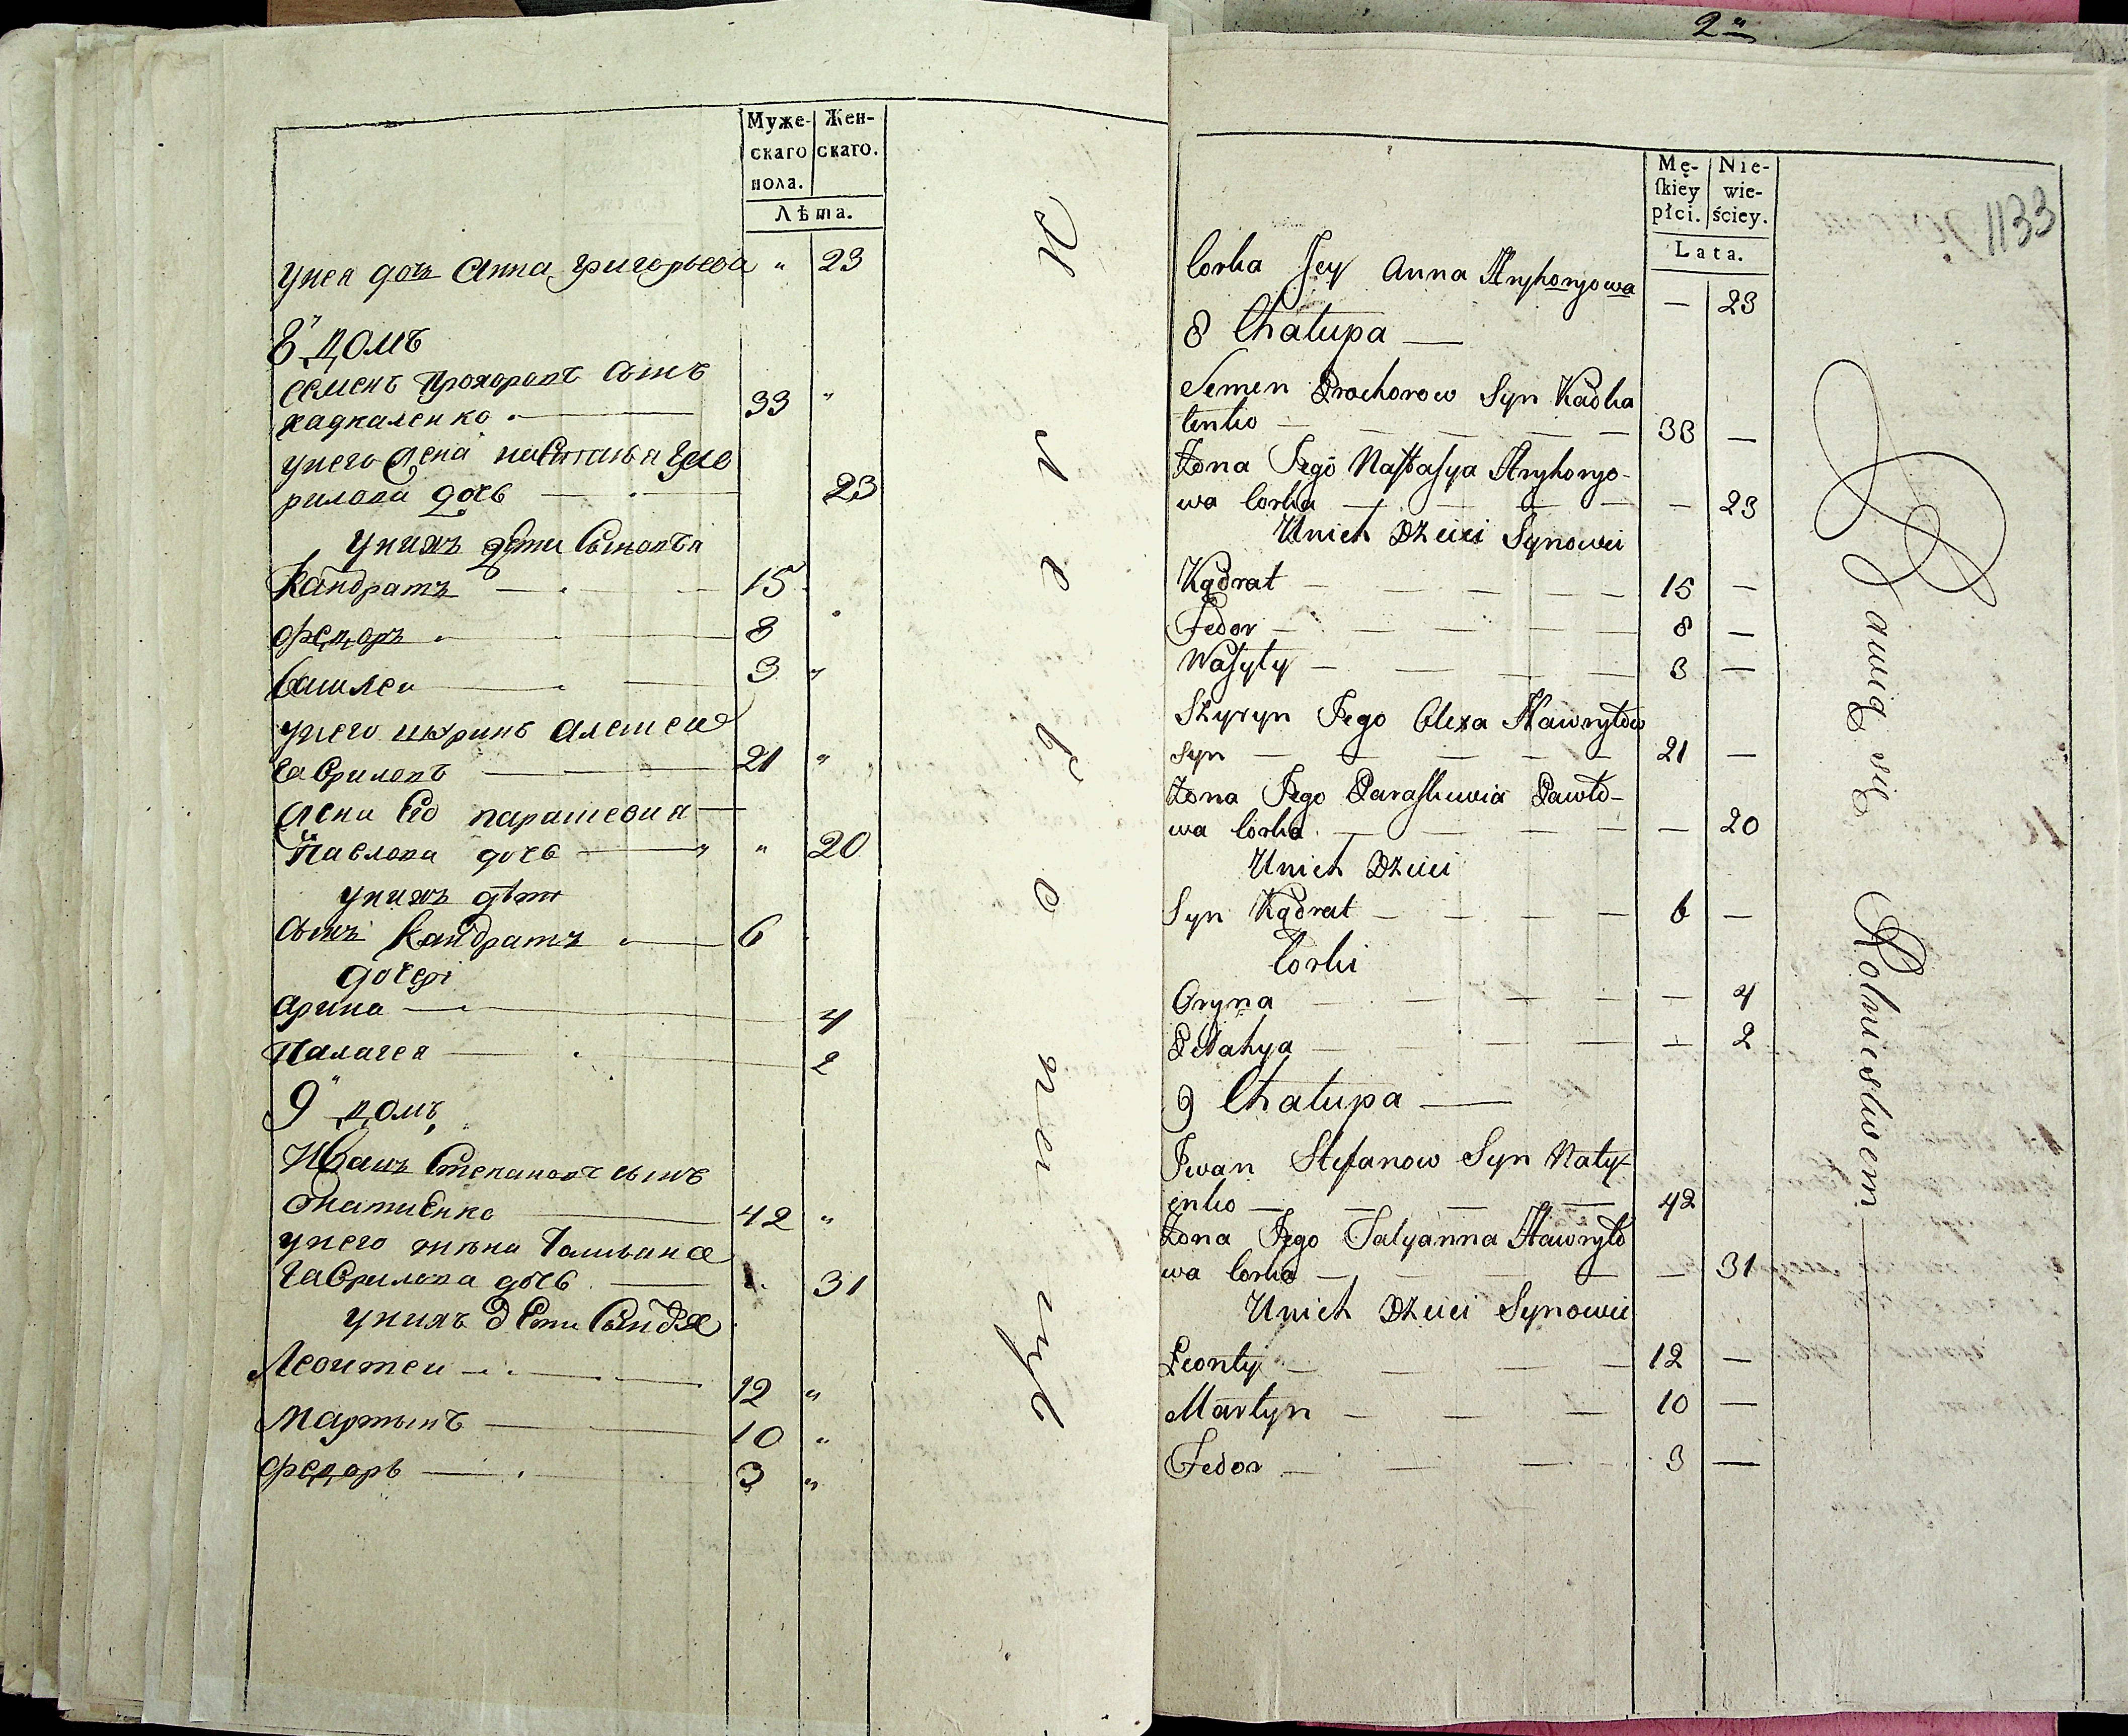 Муже-
скаго
пола.
Жен-
скаго.
Лѣта.
унея доч Анна Григорьева " 23
8" домъ
Семенъ Прохоровъ сынъ
хадкаленко 33 "
унего жена настасья Гри
рилова дочь 23
униxъ дети Сыновья
Кандратъ 15
Федоръ 8
Василеи 3 "
унего шюринъ алексеи
Гавриловъ 21 "
жена Его парасковия
Павлова дочь " 20
унихъ дѣти
Сынъ Кандратъ 6
дочери
Арина 4
Палагея 2
9" домъ
Иванъ Степановъ сынъ
Натиенко 42 "
унего жена Татьяна
Гаврилова дочь 31
унихъ дети
Леонтеи 12 "
Мартынъ 10 "
Федоръ 3 "
2"
1133
Mę-
ſkiey
płci.
Nie-
wie-
ściey.
Lata.
Corka Jey Anna Hryhoryowa — 23
8 Chałupa —
Semen Prochorow Syn Kadka
lenko — 33 —
Żona Jego Nastasya Hryhoryo-
wa Corka — — 23
Unich Dzieci Synowei
Kądrat — 15 —
Fedor — 8 —
Wasyly — 3 —
Szyryn Jego Olexa Hawryłow
syn — 21 —
Żona Jego Paraskiewia Pawło-
wa Corka — — 20
Unich Dzieci
Syn Kądrat — 6 —
Corki
Oryna — — 4
Pełahya — — 2
9 Chałupa —
Jwan Stefanow Syn Naty-
enko — 42
Żona Jego Tatyanna Hawryło
wa Corka — — 31
Unich Dzieci Synowei
Leonty — 12 —
Martyn — 10 —
Fedor — 3 —
Bawią się Rolnictwem